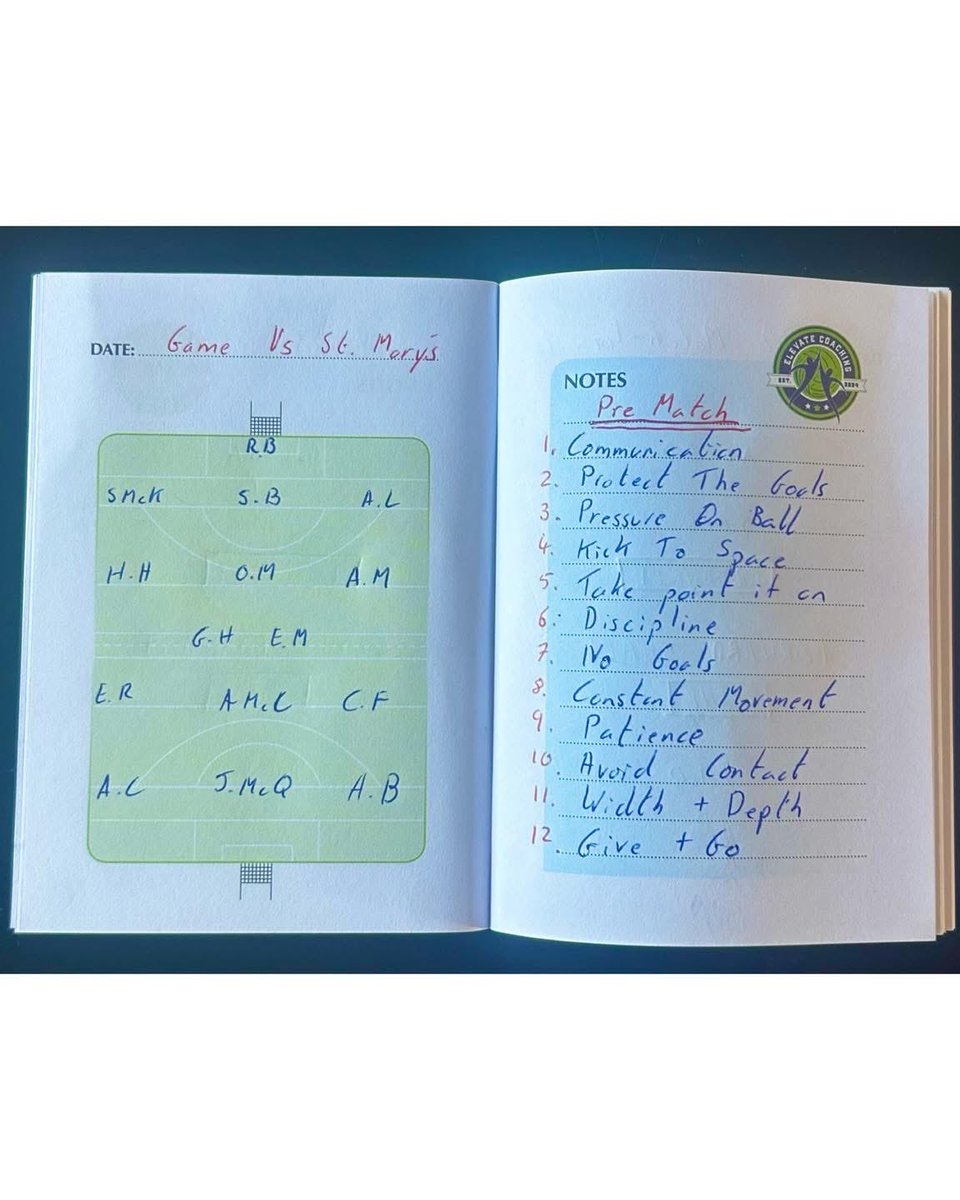 DATE: Game Vs St. Mary's
R.B
S McK S.B A.L
H.H O.M A.M
G.H E.M
E.R A McC C.F
A.C J.McQ A.B
ELEVATE COACHING
EST. 2024
NOTES
Pre Match
1. Communication
2. Protect The Goals
3. Pressure On Ball
4. Kick To Space
5. Take point it on
6. Discipline
7. No Goals
8. Constant Movement
9. Patience
10. Avoid Contact
11. Width + Depth
12. Give + Go